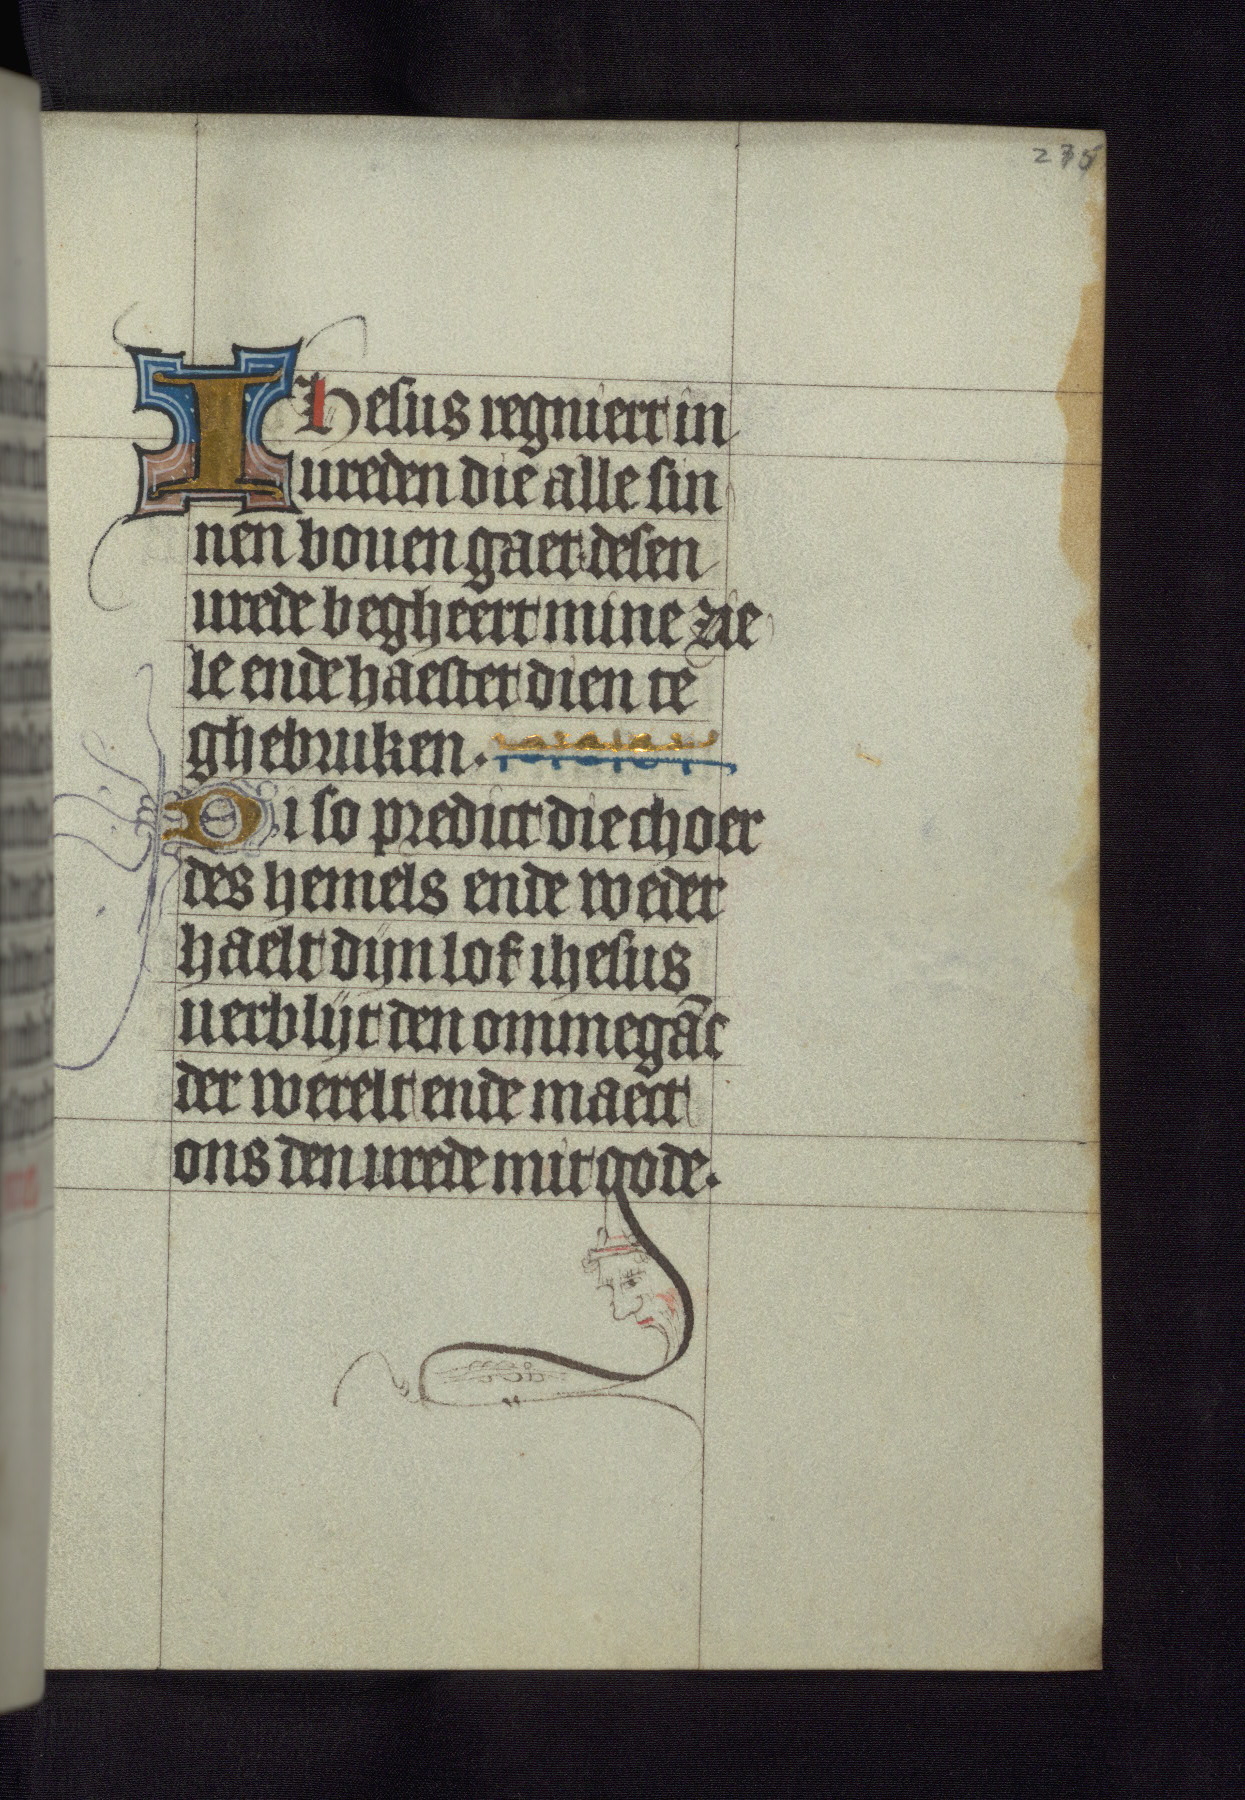 235
Ihesus regniert in
ureden die alle sin
nen bouen gaet desen
urede begheert mine zie
le ende haestet dien te
ghebruken.
Di so predict die choer
des hemels ende weder
haelt dijn lof ihesus
uerblijt den ommegāc
der werelt ende maect
ons den urede mit gode.